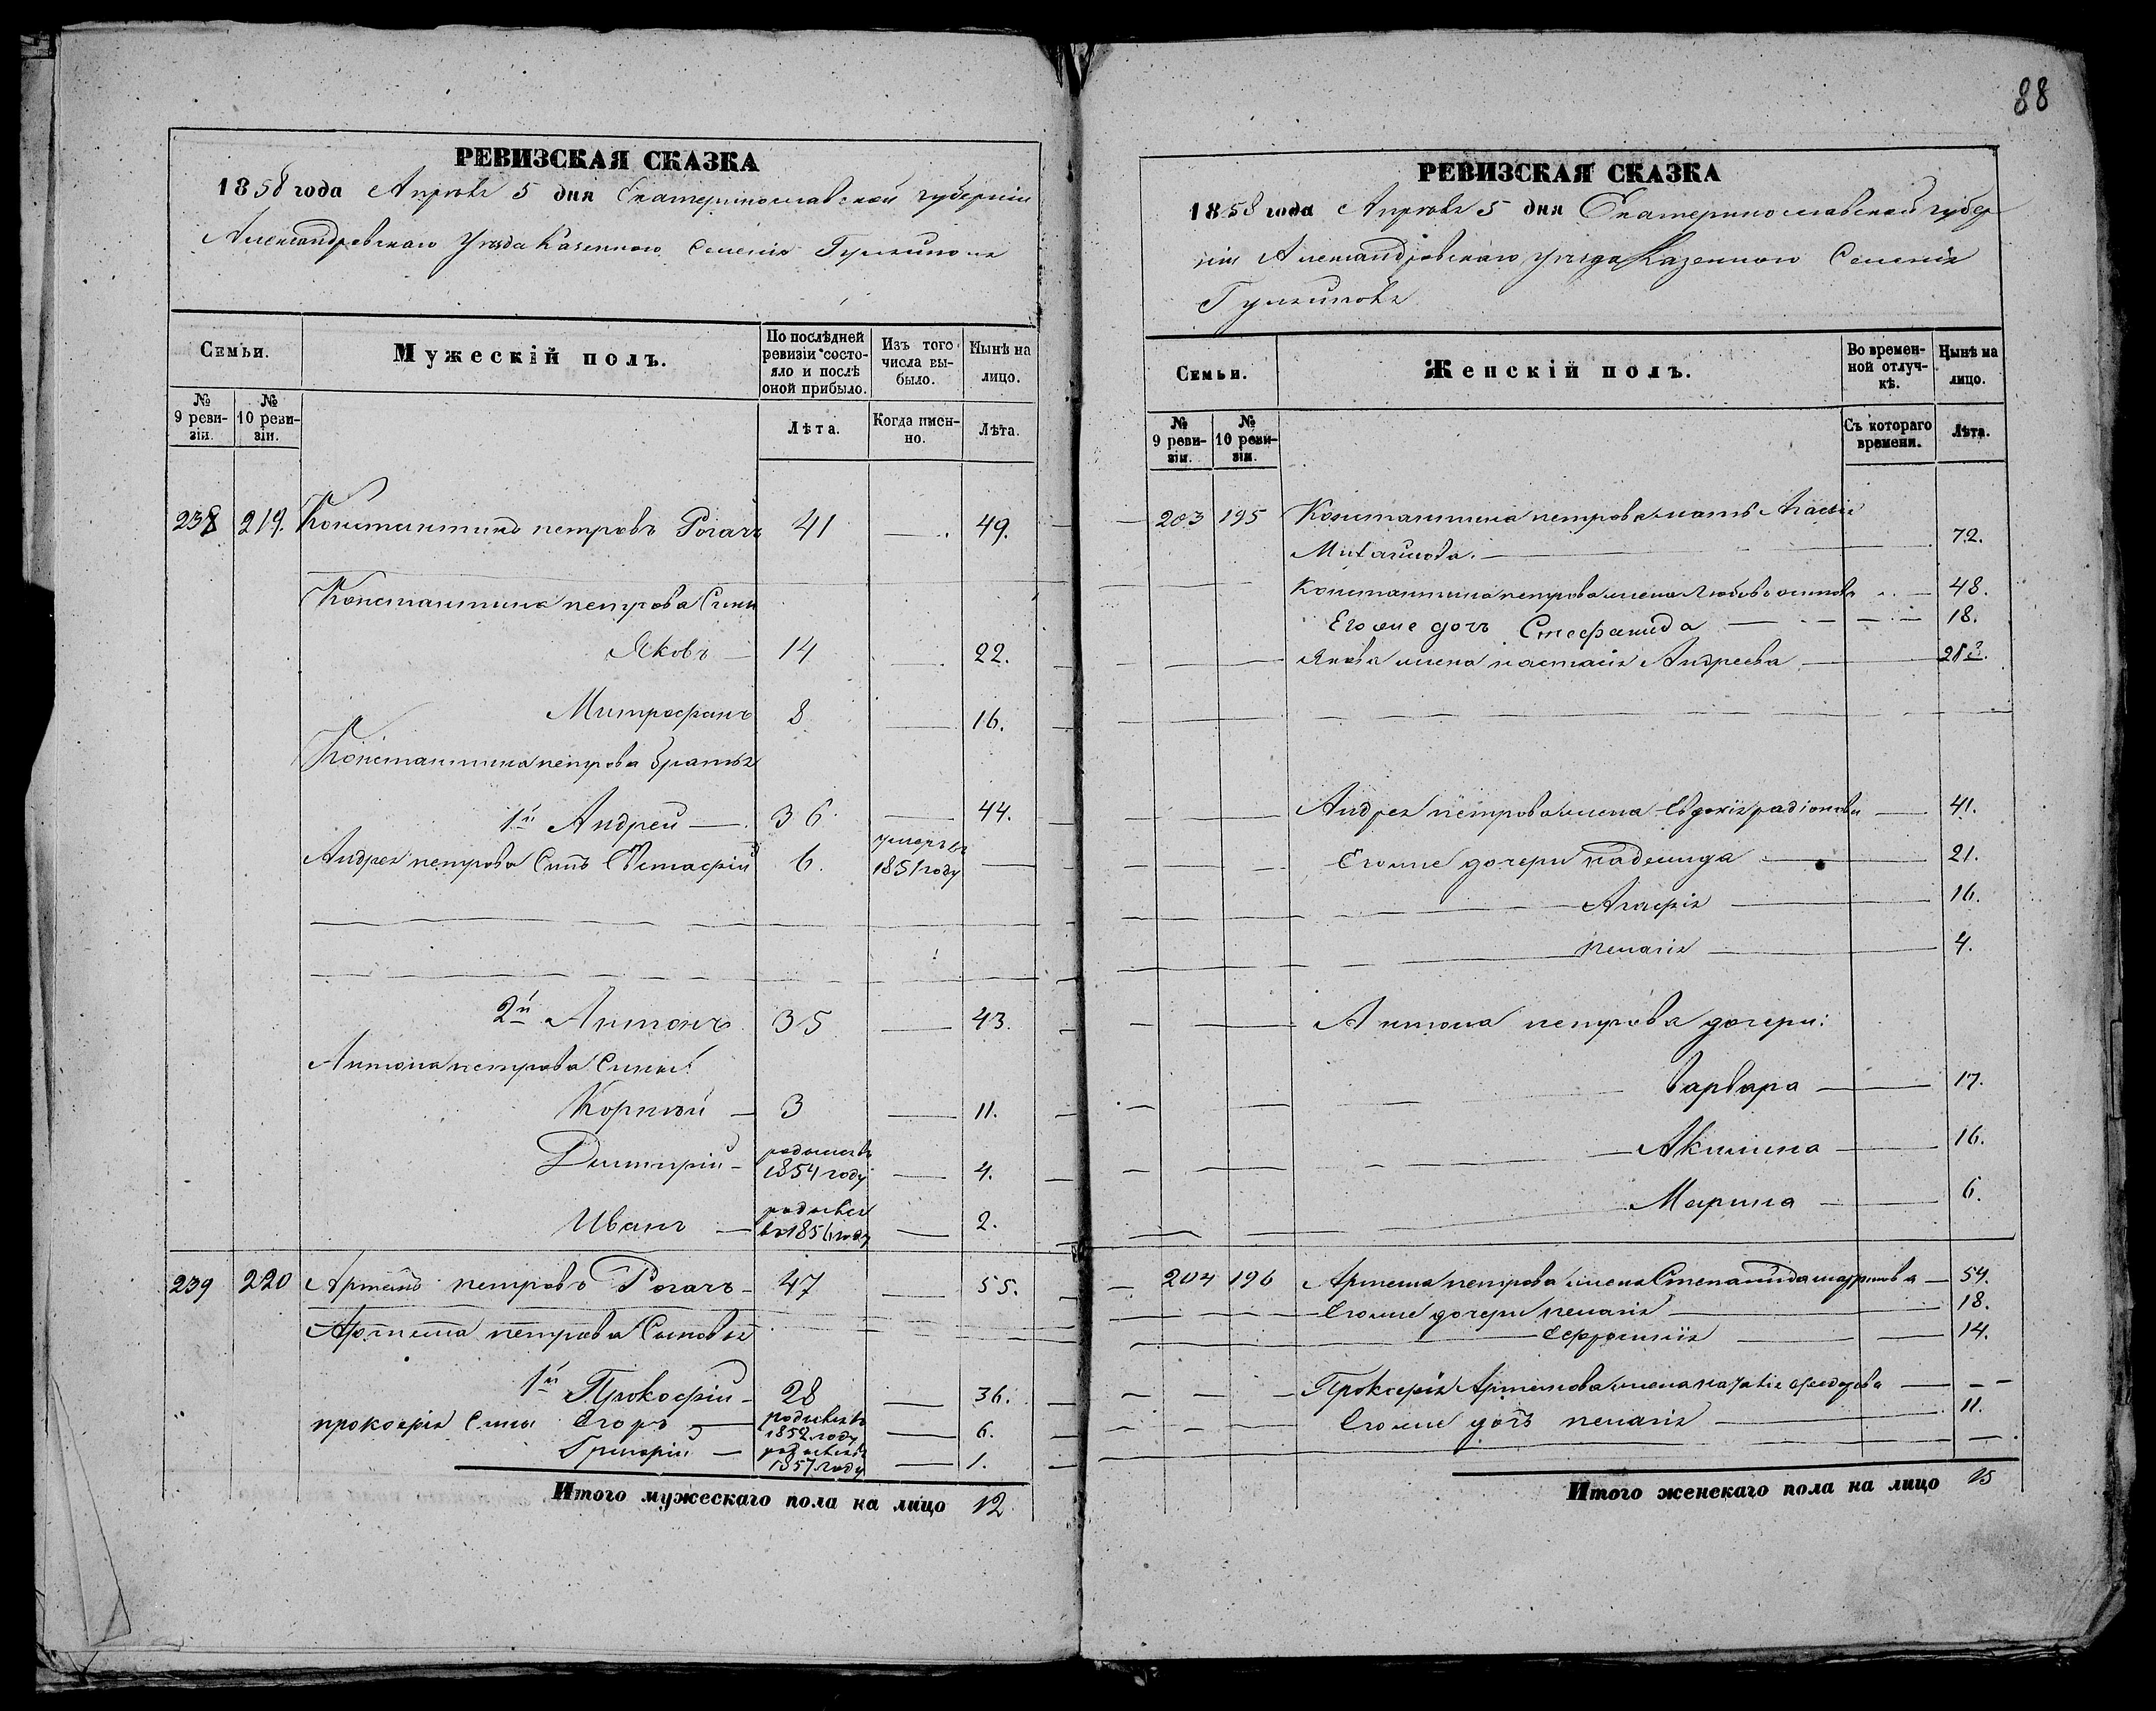 88
РЕВИЗСКАЯ СКАЗКА
1858 года Апрѣля 5 дня Екатеринославской губерніи
Александровскаго Уѣзда Казеннаго Селенія Гуляйполя
Семьи.
Мужескій полъ.
По послѣдней ревизіи состояло и послѣ оной прибыло.
Изъ того числа выбыло.
Нынѣ на лицо.
№ 9 ревизіи.
№ 10 ревизіи.
Лѣта.
Когда именно.
Лѣта.
238 219. Константинъ петровъ Рогачъ 41 49.
Константина петрова Сыны
Яковъ 14 22.
Митрофанъ 8 16.
Константина петрова братья
1й Андрей 36 44.
Андрея петрова Сынъ Евстафій 6. умеръ въ 1851 году
2й Антонъ 35 43.
Антона петрова Сыны:
Корнѣй 3 11.
Дмитрій родился въ 1854 году 4.
Иванъ родился въ 1856 году 2.
239 220 Артемъ петровъ Рогачъ 47 55.
Артема петрова Сыновья
1й Прокофій 28 36.
прокофія Сыны Егоръ родился въ 1852 году 6.
Григорій родился въ 1857 году 1.
Итого мужескаго пола на лицо 12
РЕВИЗСКАЯ СКАЗКА
1858 года Апрѣля 5 дня Екатеринославской губер
ніи Александровскаго уѣзда Казеннаго Селенія
Гуляйполя
Семьи.
Женскій полъ.
Во временной отлучкѣ.
Нынѣ на лицо.
№ 9 ревизіи.
№ 10 ревизіи.
Съ котораго времени.
Лѣта.
203 195 Константина петрова мать Агафія
Михайлова. 72.
Константина петрова жена Любовь осипова 48.
Его же дочь Стефанида 18.
Якова жена настасія Андреева
Андрея петрова жена Евдокія радіонова 41.
Его же дочери надежда 21.
Агафія 16.
пелагія 4.
Антона петрова дочери:
Варвара 17.
Акилина 16.
Марина 6.
204 196 Артема петрова жена Степанида 54.
Его же дочери пелагія 18.
Ефросинія 14.
Прокофія Артемова жена наталія федорова
Его же дочь пелагія 11.
Итого женскаго пола на лицо 15